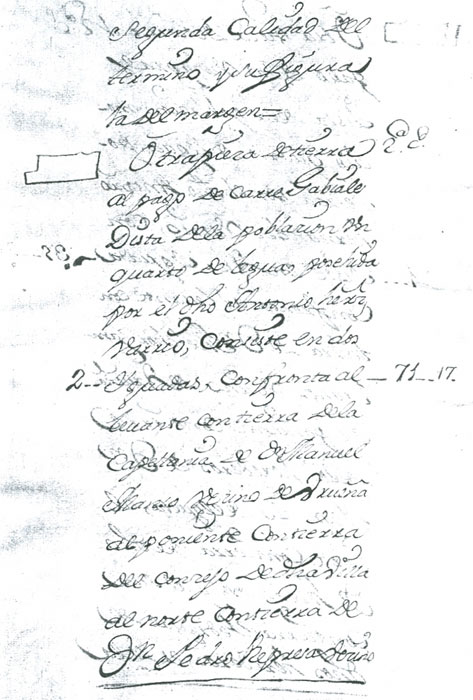 Segunda Calidad del
termino y su figura
la del margen =
Otra pieza de tierra 2ª C.
al pago de Carre Gabiale
Dista de la poblazion un
quarto de legua, poseida
por el dho Antonio
Varrio, Consiste en dos
2 - Yguadas, Confronta al - 71 - 17.
levante con tierra de la
Capellania de Dn Manuel
Marcos Vecino de Vrueña
al poniente Con tierra
del Conzejo de dha Villa
al norte Con tierra de
Dn Pedro Represa